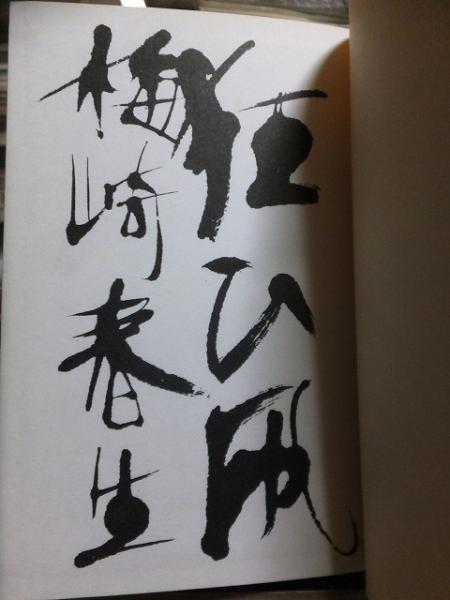 狂ひ凧
梅崎春生